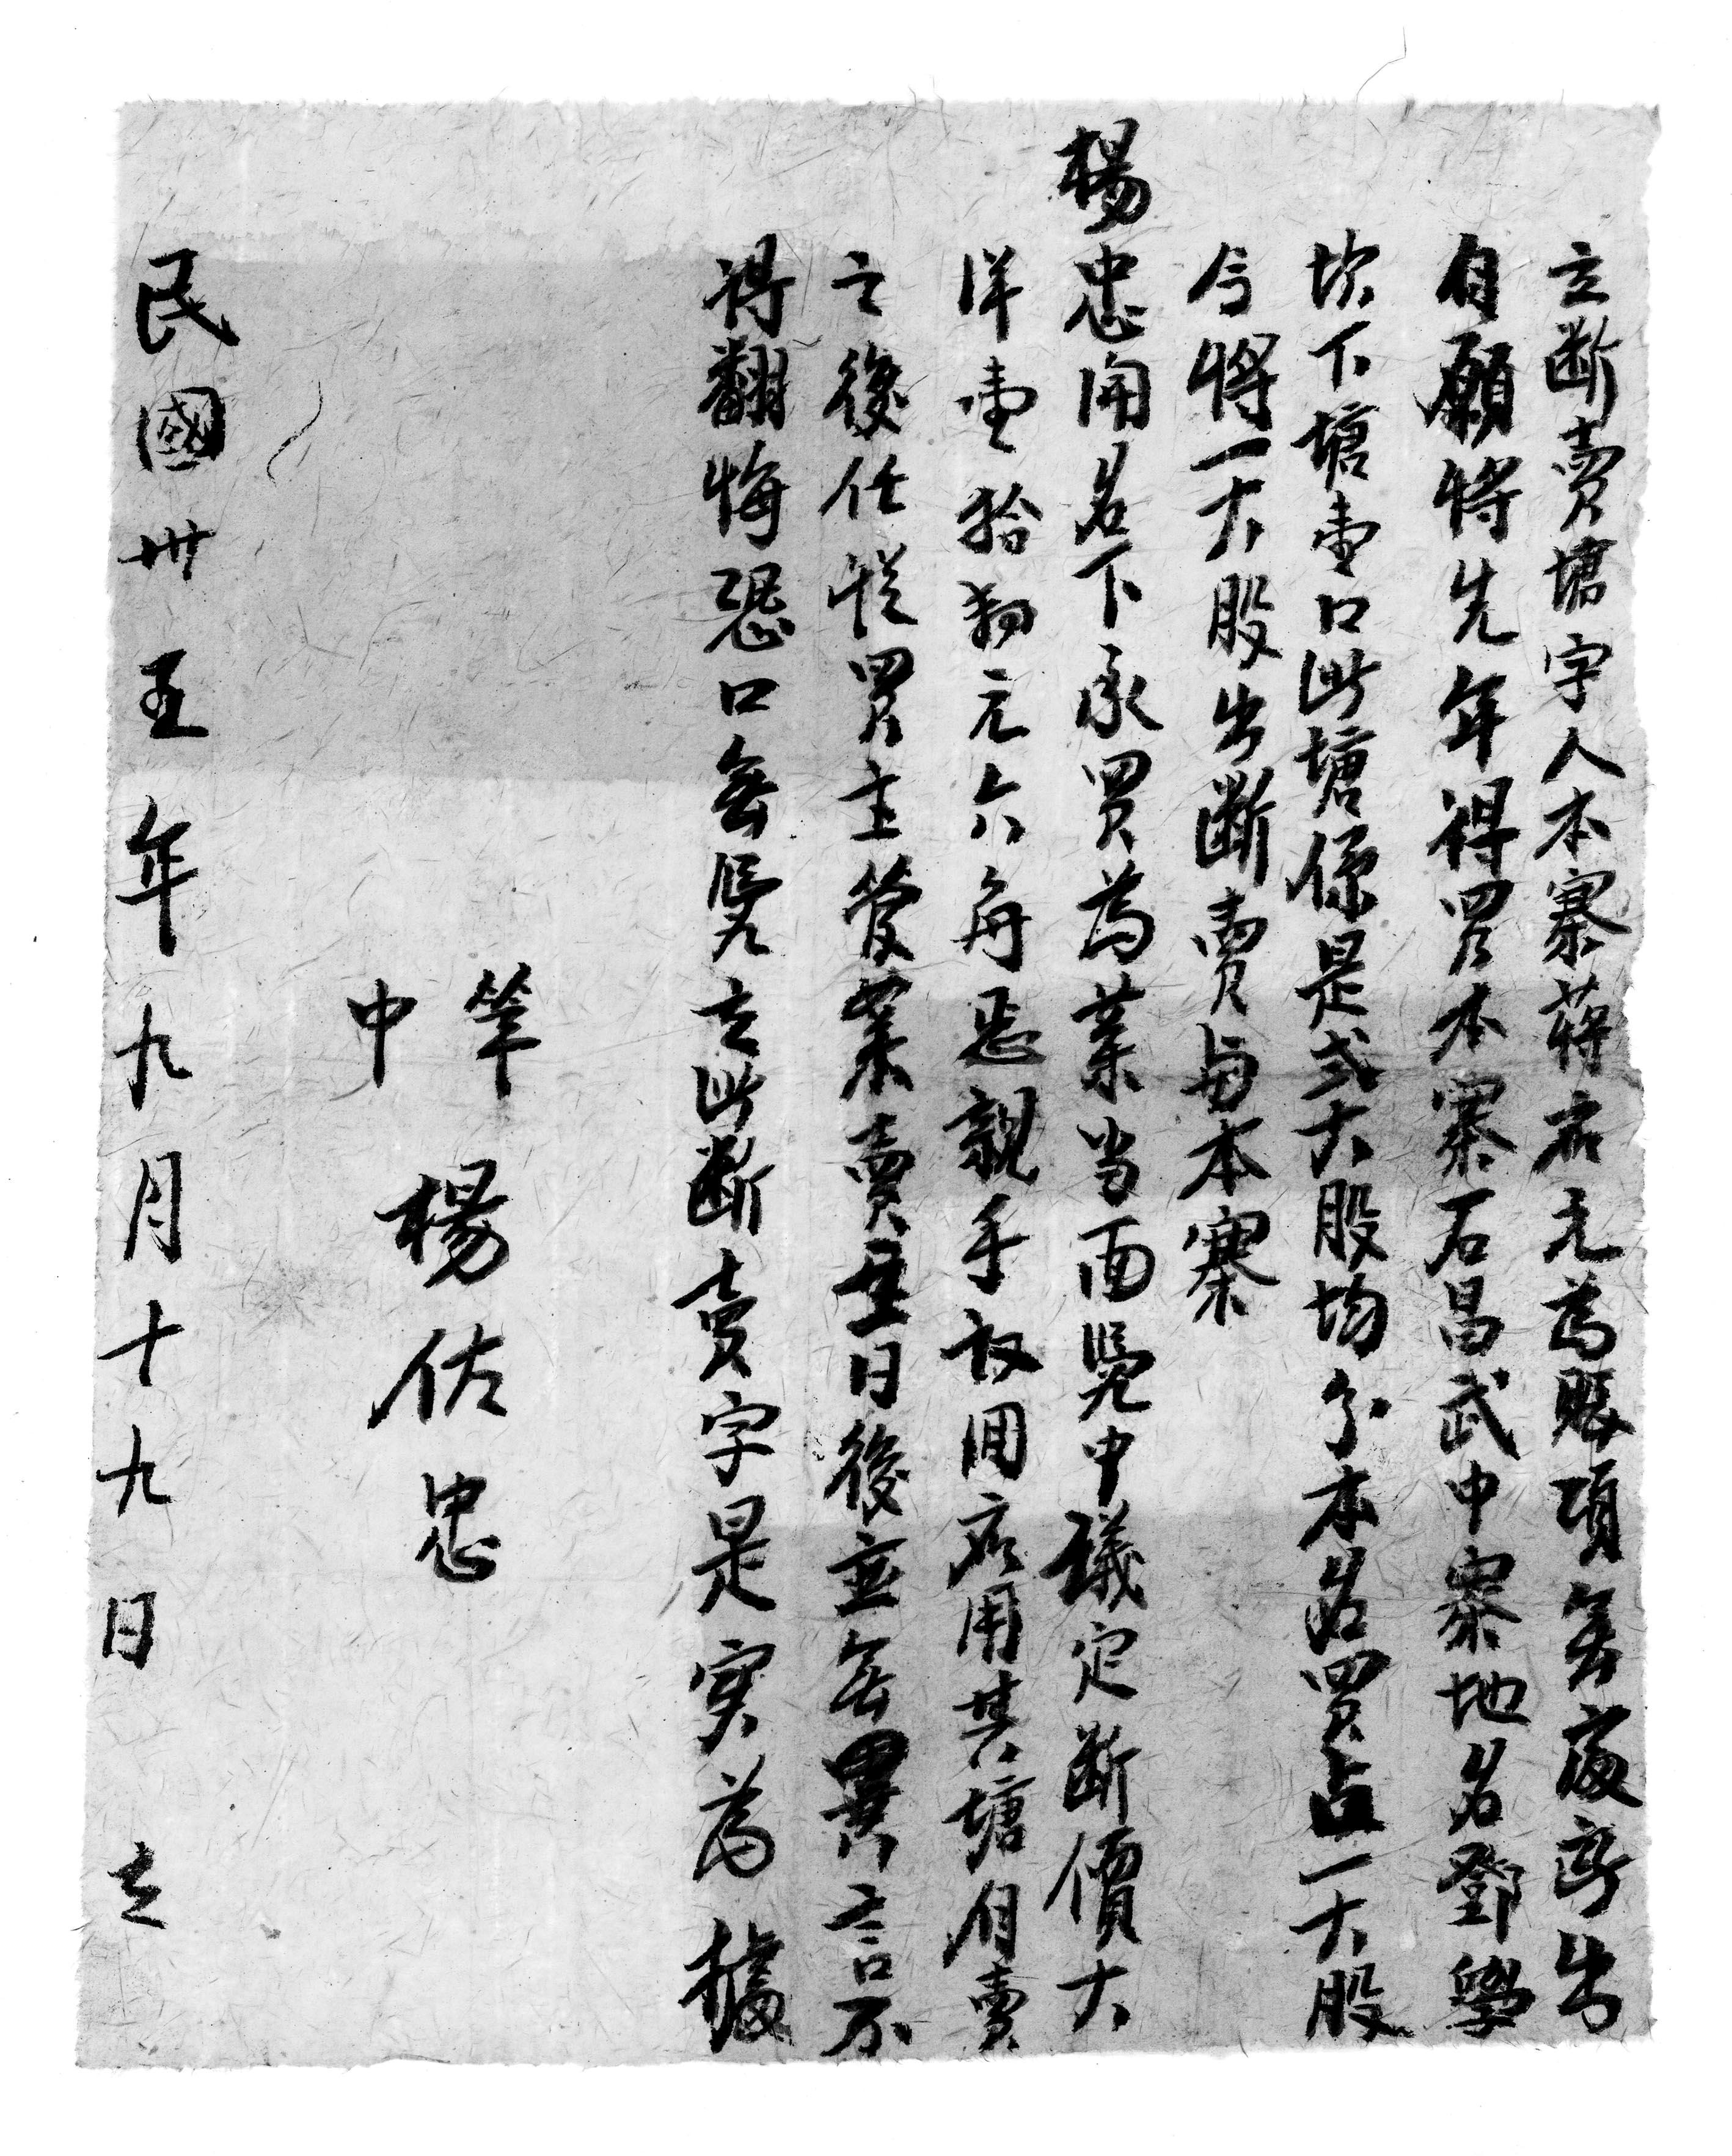 立断賣塘字人本寨蒋右元為賬項無處所出
自願将先年得買本寨石昌武中寨地名鄧學
坎下塘壹口此塘係是弍大股均分本名買占一大股
今将一大股出断賣與本寨
楊忠開名下承買為業当面凭中議定断價大
洋壹拾元六角恁親手收回應用其塘自賣
之後任從買主管業賣主日後並無異言不
得翻悔恐口無凴立此断賣字是实為據
筆
中 楊佑忠
民國卅五年九月十九日 立